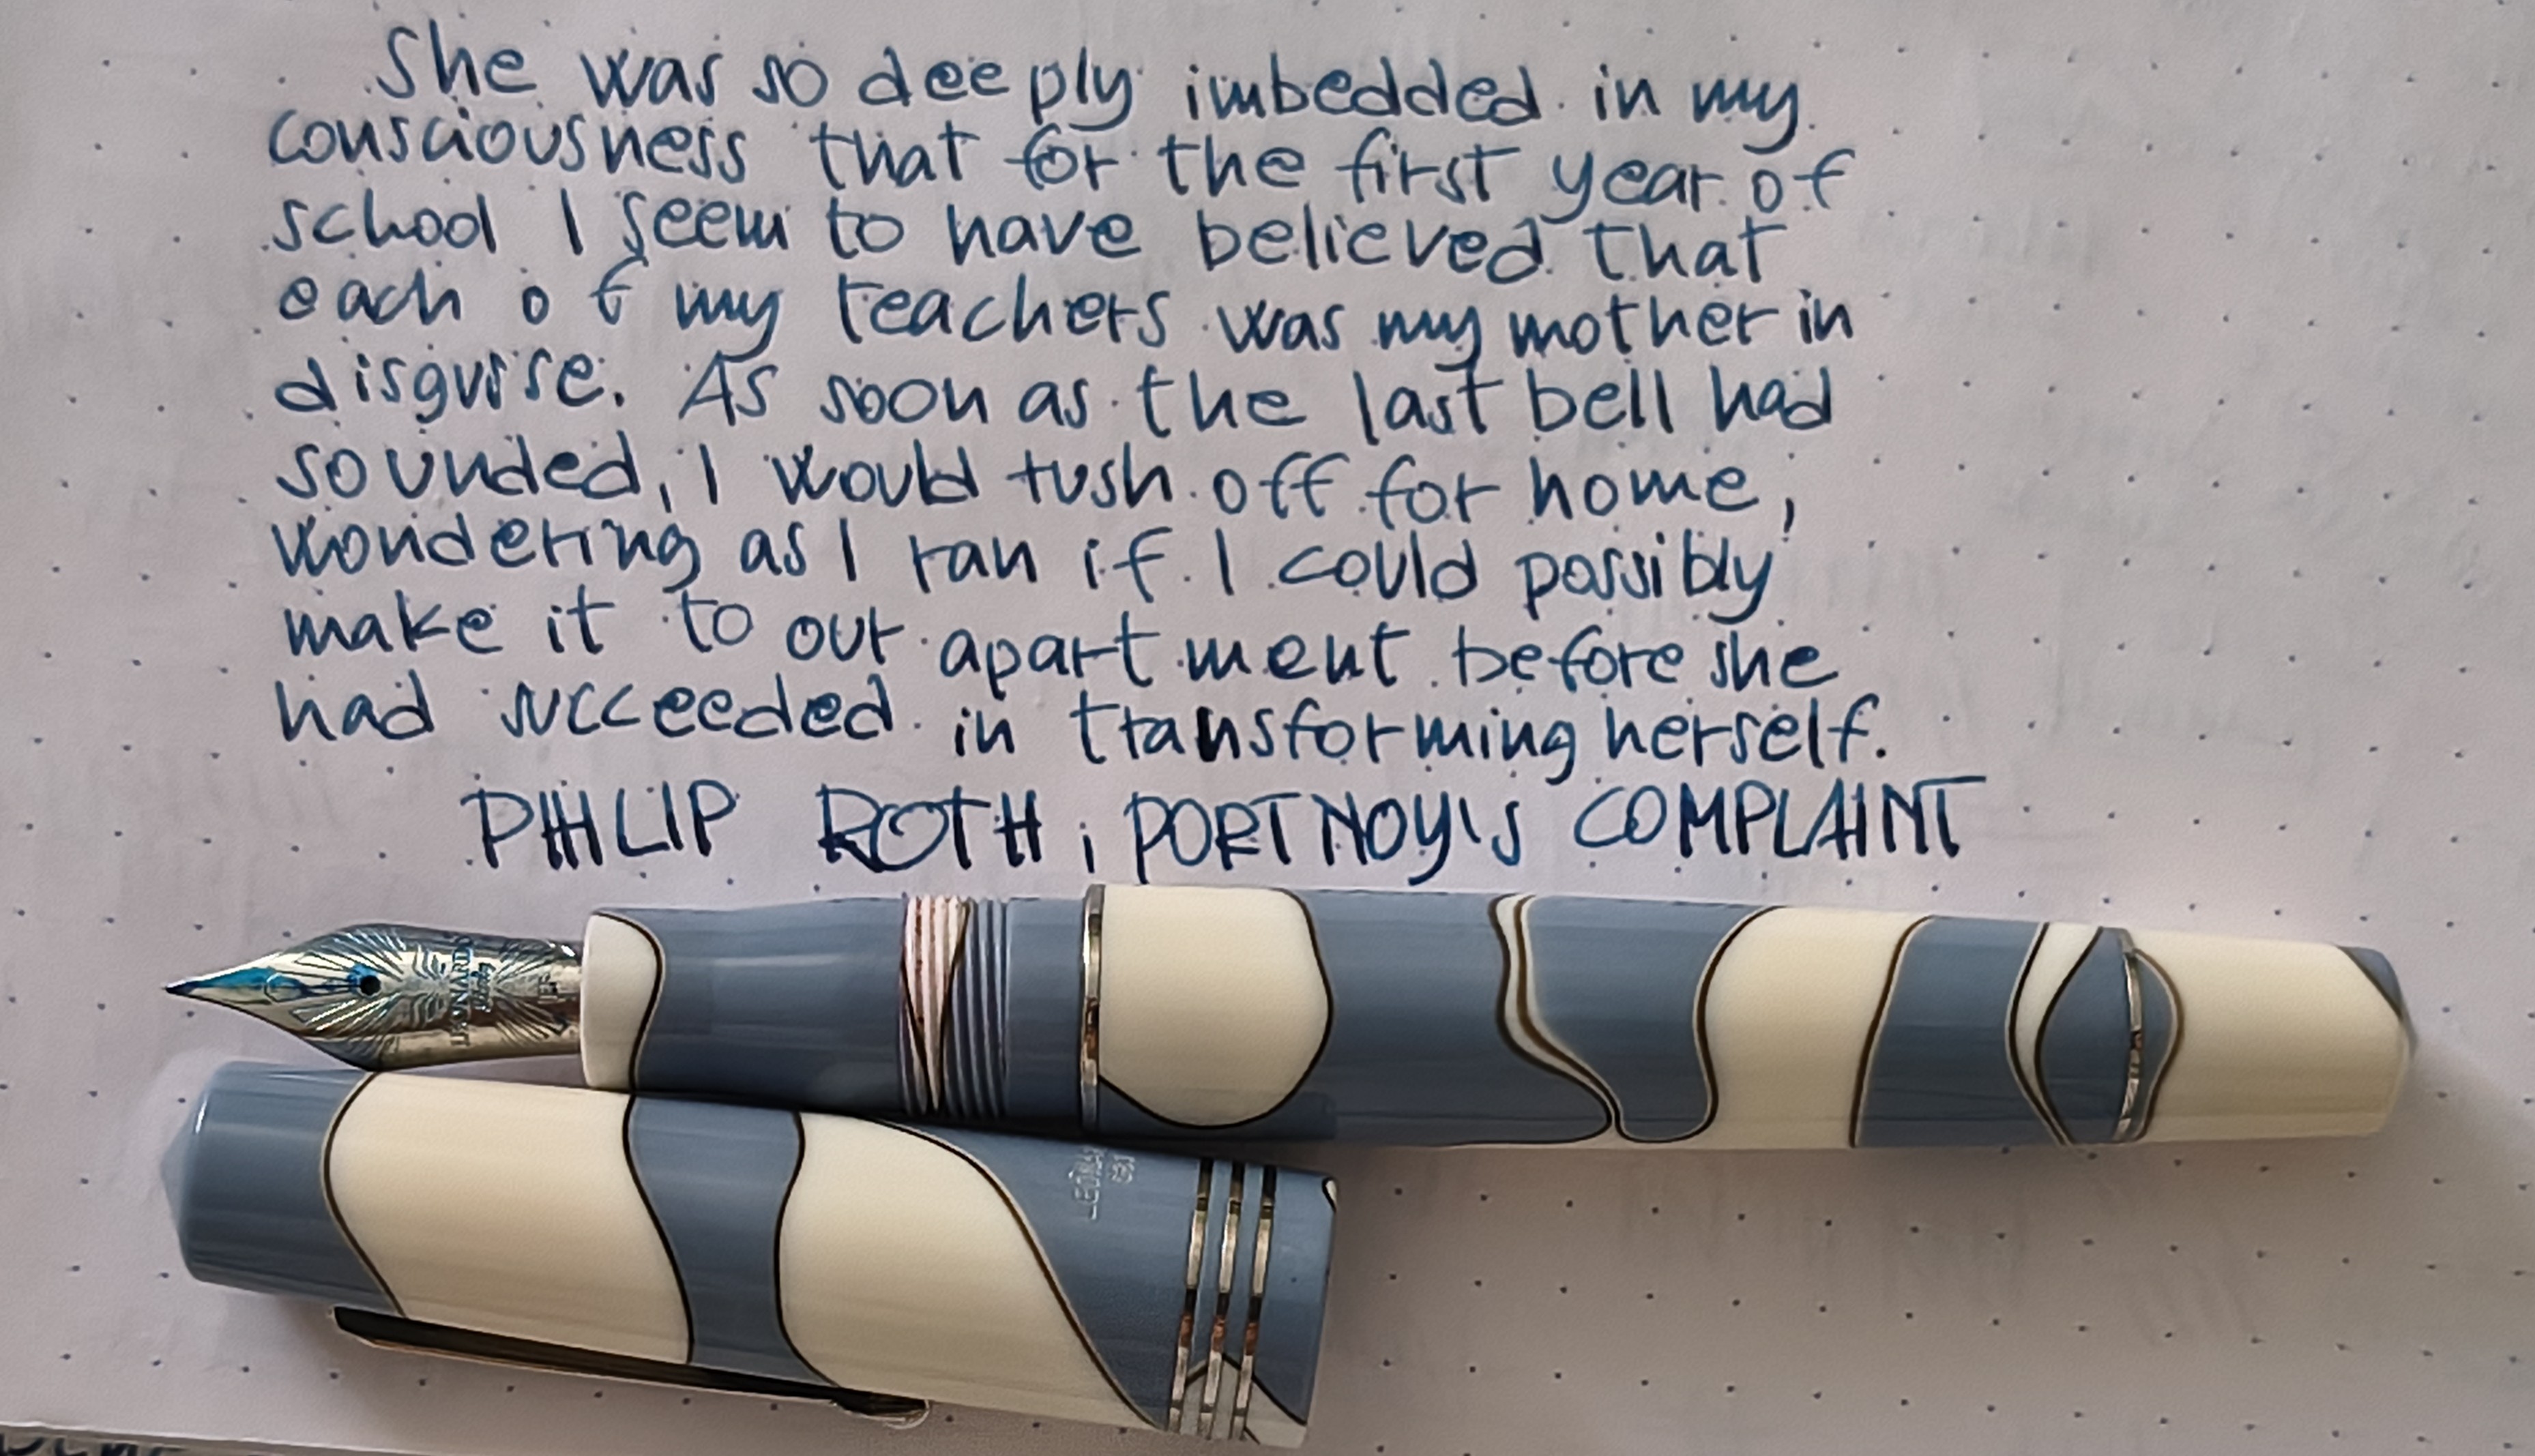 She was so deeply imbedded in my
consciousness that for the first year of
school I seem to have believed that
each of my teachers was my mother in
disguise. As soon as the last bell had
sounded, I would rush off for home,
wondering as I ran if I could possibly
make it to our apartment before she
had succeeded in transforming herself.
PHILIP ROTH, PORTNOY'S COMPLAINT
LEONARDO